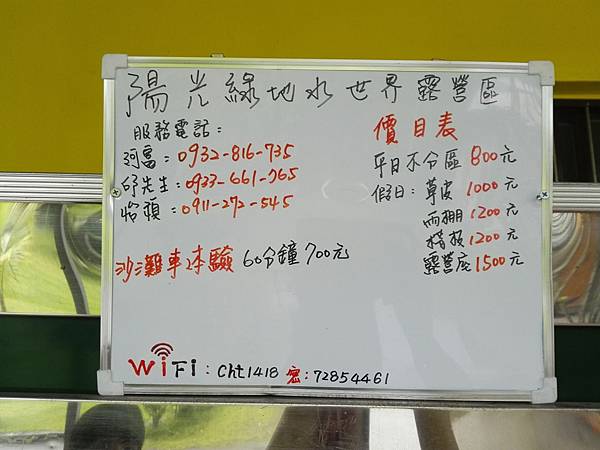 陽光綠地水世界露營區
服務電話：
阿富：0932-816-735
邱先生：0933-661-765
怡頻：0911-272-545
沙灘車体驗 60分鐘 700元
WiFi：cht1418 密：72854461
價目表
平日不分區 800元
假日：草皮 1000元
雨棚 1200元
棧板 1200元
露營底 1500元